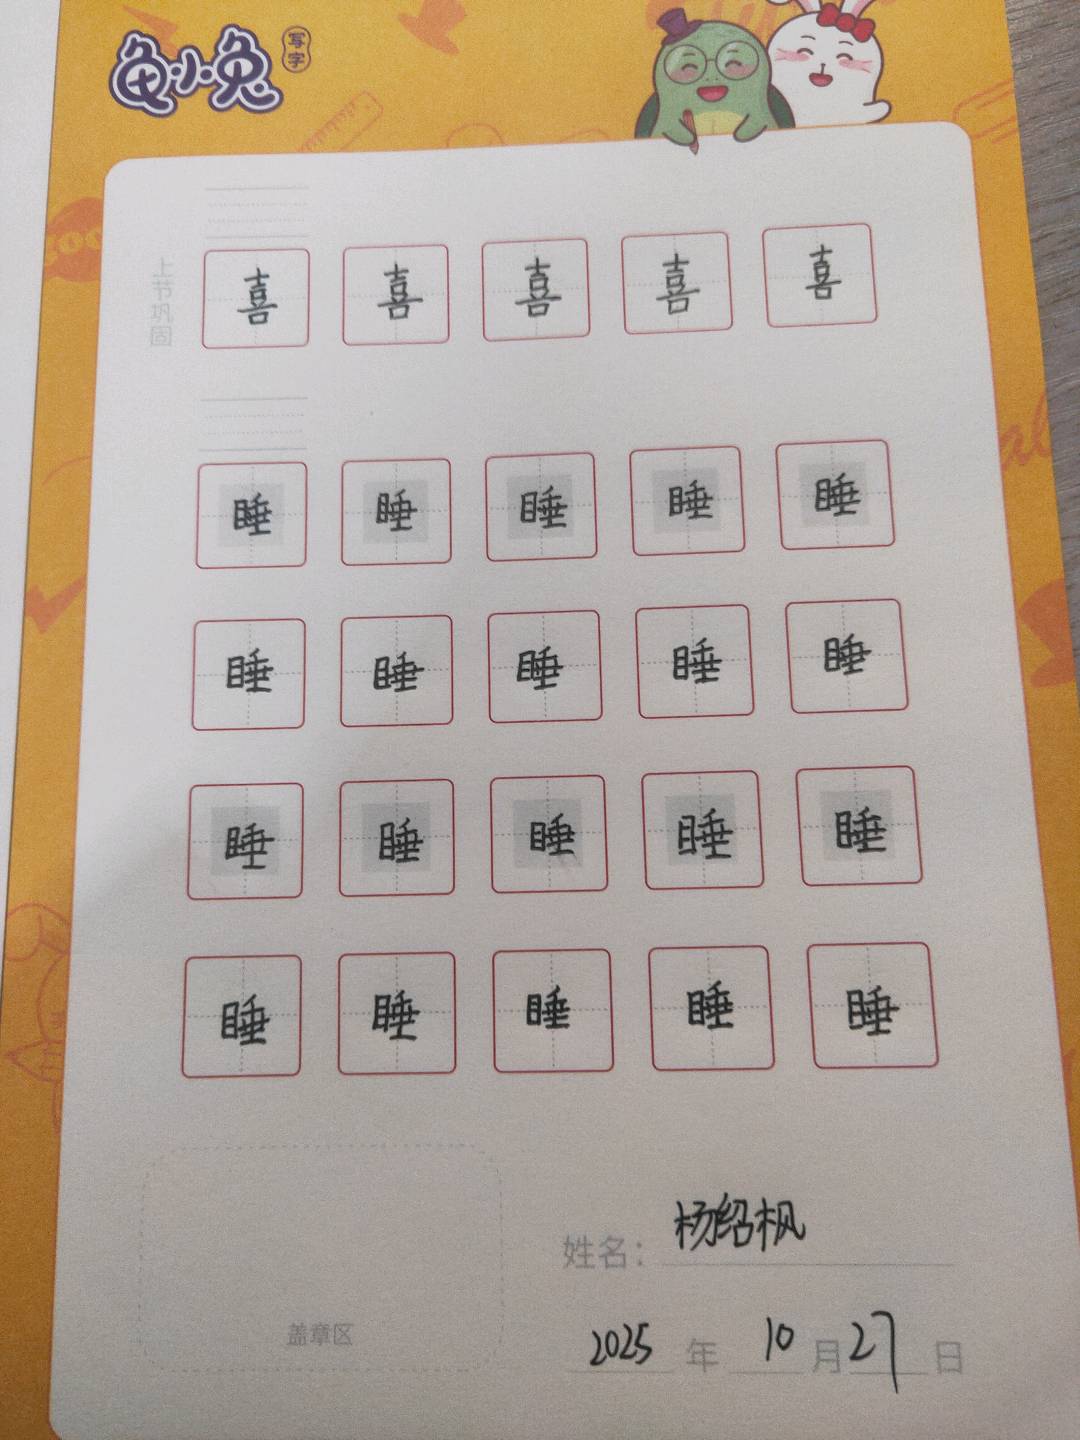 龟小兔 写字
上节巩固
喜 喜 喜 喜 喜
睡 睡 睡 睡 睡
睡 睡 睡 睡 睡
睡 睡 睡 睡 睡
睡 睡 睡 睡 睡
姓名：杨绍枫
盖章区
2025 年 10 月 27 日